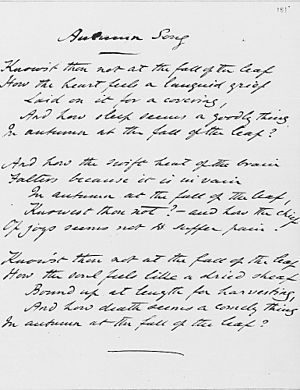 181
Autumn Song
Know'st thou not at the fall of the leaf
How the heart feels a languid grief
Laid on it for a covering,
And how sleep seems a goodly thing
In autumn at the fall of the leaf?
And how the swift beat of the brain
Falters because it is in vain
In autumn at the fall of the leaf,
Knowest thou not? – and how the chief
Of joys seems not to suffer pain?
Know'st thou not at the fall of the leaf
How the soul feels like a dried sheaf
Bound up at length for harvesting,
And how death seems a comely thing
In autumn at the fall of the leaf?